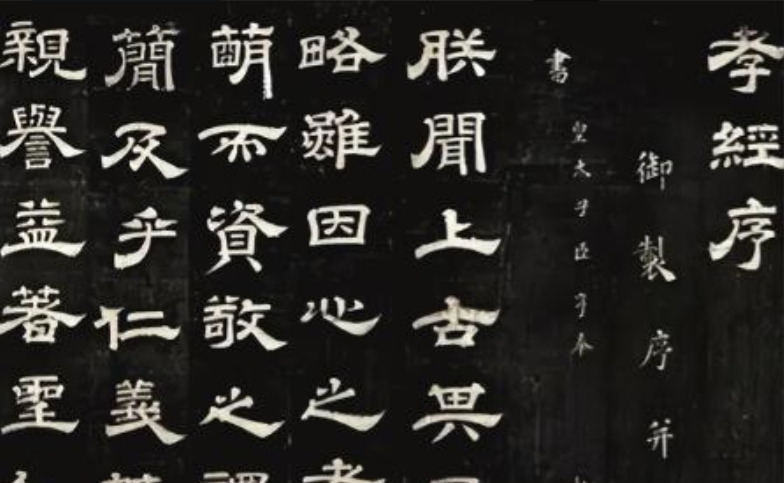 孝經序
御製序并
皇太子臣亨奉
書
朕聞上古其
略雖因心之
萌而資敬之
簡及乎仁義
親譽益著聖